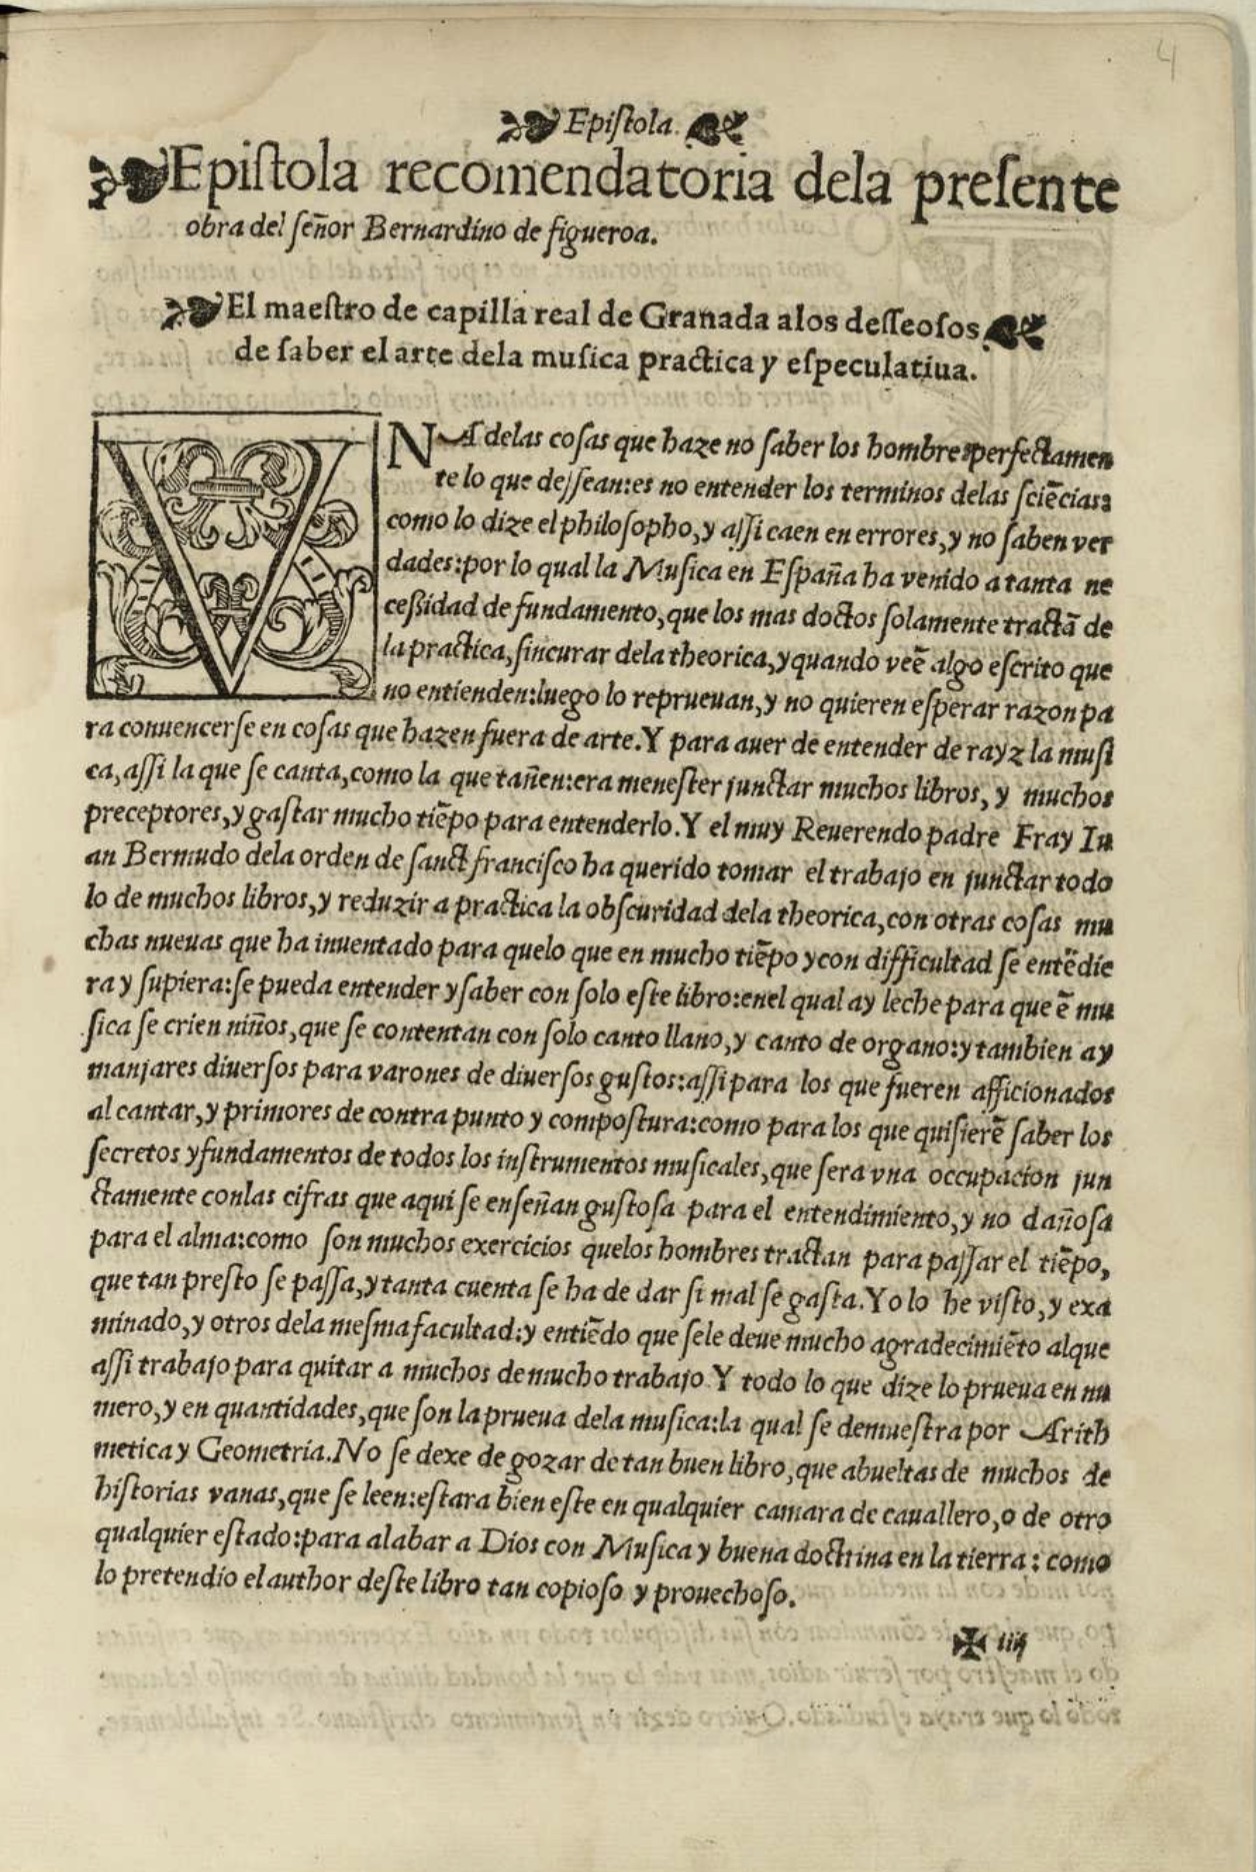 4
Epiſtola.
Epiſtola recomendatoria dela preſente
obra del ſeñor Bernardino de figueroa.
El maeſtro de capilla real de Granada alos deſſeoſos
de ſaber el arte dela muſica practica y eſpeculatiua.
VNA delas coſas que haze no ſaber los hombres perfectamen
te lo que deſſean: es no entender los terminos delas ſciẽcias:
como lo dize el philoſopho, y aſſi caen en errores, y no ſaben ver
dades: por lo qual la Muſica en Eſpaña ha venido a tanta ne
ceßidad de fundamento, que los mas doctos ſolamente tractã de
la practica, ſin curar dela theorica, y quando veẽ algo eſcrito que
no entienden: luego lo reprueuan, y no quieren eſperar razon pa
ra conuencerſe en coſas que hazen fuera de arte. Y para auer de entender de rayz la muſi
ca, aſſi la que ſe canta, como la que tañen: era meneſter junctar muchos libros, y muchos
preceptores, y gaſtar mucho tiẽpo para entenderlo. Y el muy Reuerendo padre Fray Iu
an Bermudo dela orden de ſanct franciſco ha querido tomar el trabajo en junctar todo
lo de muchos libros, y reduzir a practica la obſcuridad dela theorica, con otras coſas mu
chas nueuas que ha inuentado para quelo que en mucho tiẽpo y con difficultad ſe entẽdie
ra y ſupiera: ſe pueda entender y ſaber con ſolo eſte libro: enel qual ay leche para que ẽ mu
ſica ſe crien niños, que ſe contentan con ſolo canto llano, y canto de organo: y tambien ay
manjares diuerſos para varones de diuerſos guſtos: aſſi para los que fueren afficionados
al cantar, y primores de contra punto y compoſtura: como para los que quiſierẽ ſaber los
ſecretos y fundamentos de todos los inſtrumentos muſicales, que ſera vna occupacion jun
ctamente conlas cifras que aqui ſe enſeñan guſtoſa para el entendimiento, y no dañoſa
para el alma: como ſon muchos exercicios quelos hombres tractan para paſſar el tiẽpo,
que tan preſto ſe paſſa, y tanta cuenta ſe ha de dar ſi mal ſe gaſta. Yo lo he viſto, y exa
minado, y otros dela meſma facultad: y entiẽdo que ſele deue mucho agradecimiẽto alque
aſſi trabajo para quitar a muchos de mucho trabajo Y todo lo que dize lo prueua en nu
mero, y en quantidades, que ſon la prueua dela muſica: la qual ſe demueſtra por Arith
metica y Geometria. No ſe dexe de gozar de tan buen libro, que abueltas de muchos de
hiſtorias vanas, que ſe leen: eſtara bien eſte en qualquier camara de cauallero, o de otro
qualquier eſtado: para alabar a Dios con Muſica y buena doctrina en la tierra: como
lo pretendio el author deſte libro tan copioſo y prouechoſo.
✠ iiij